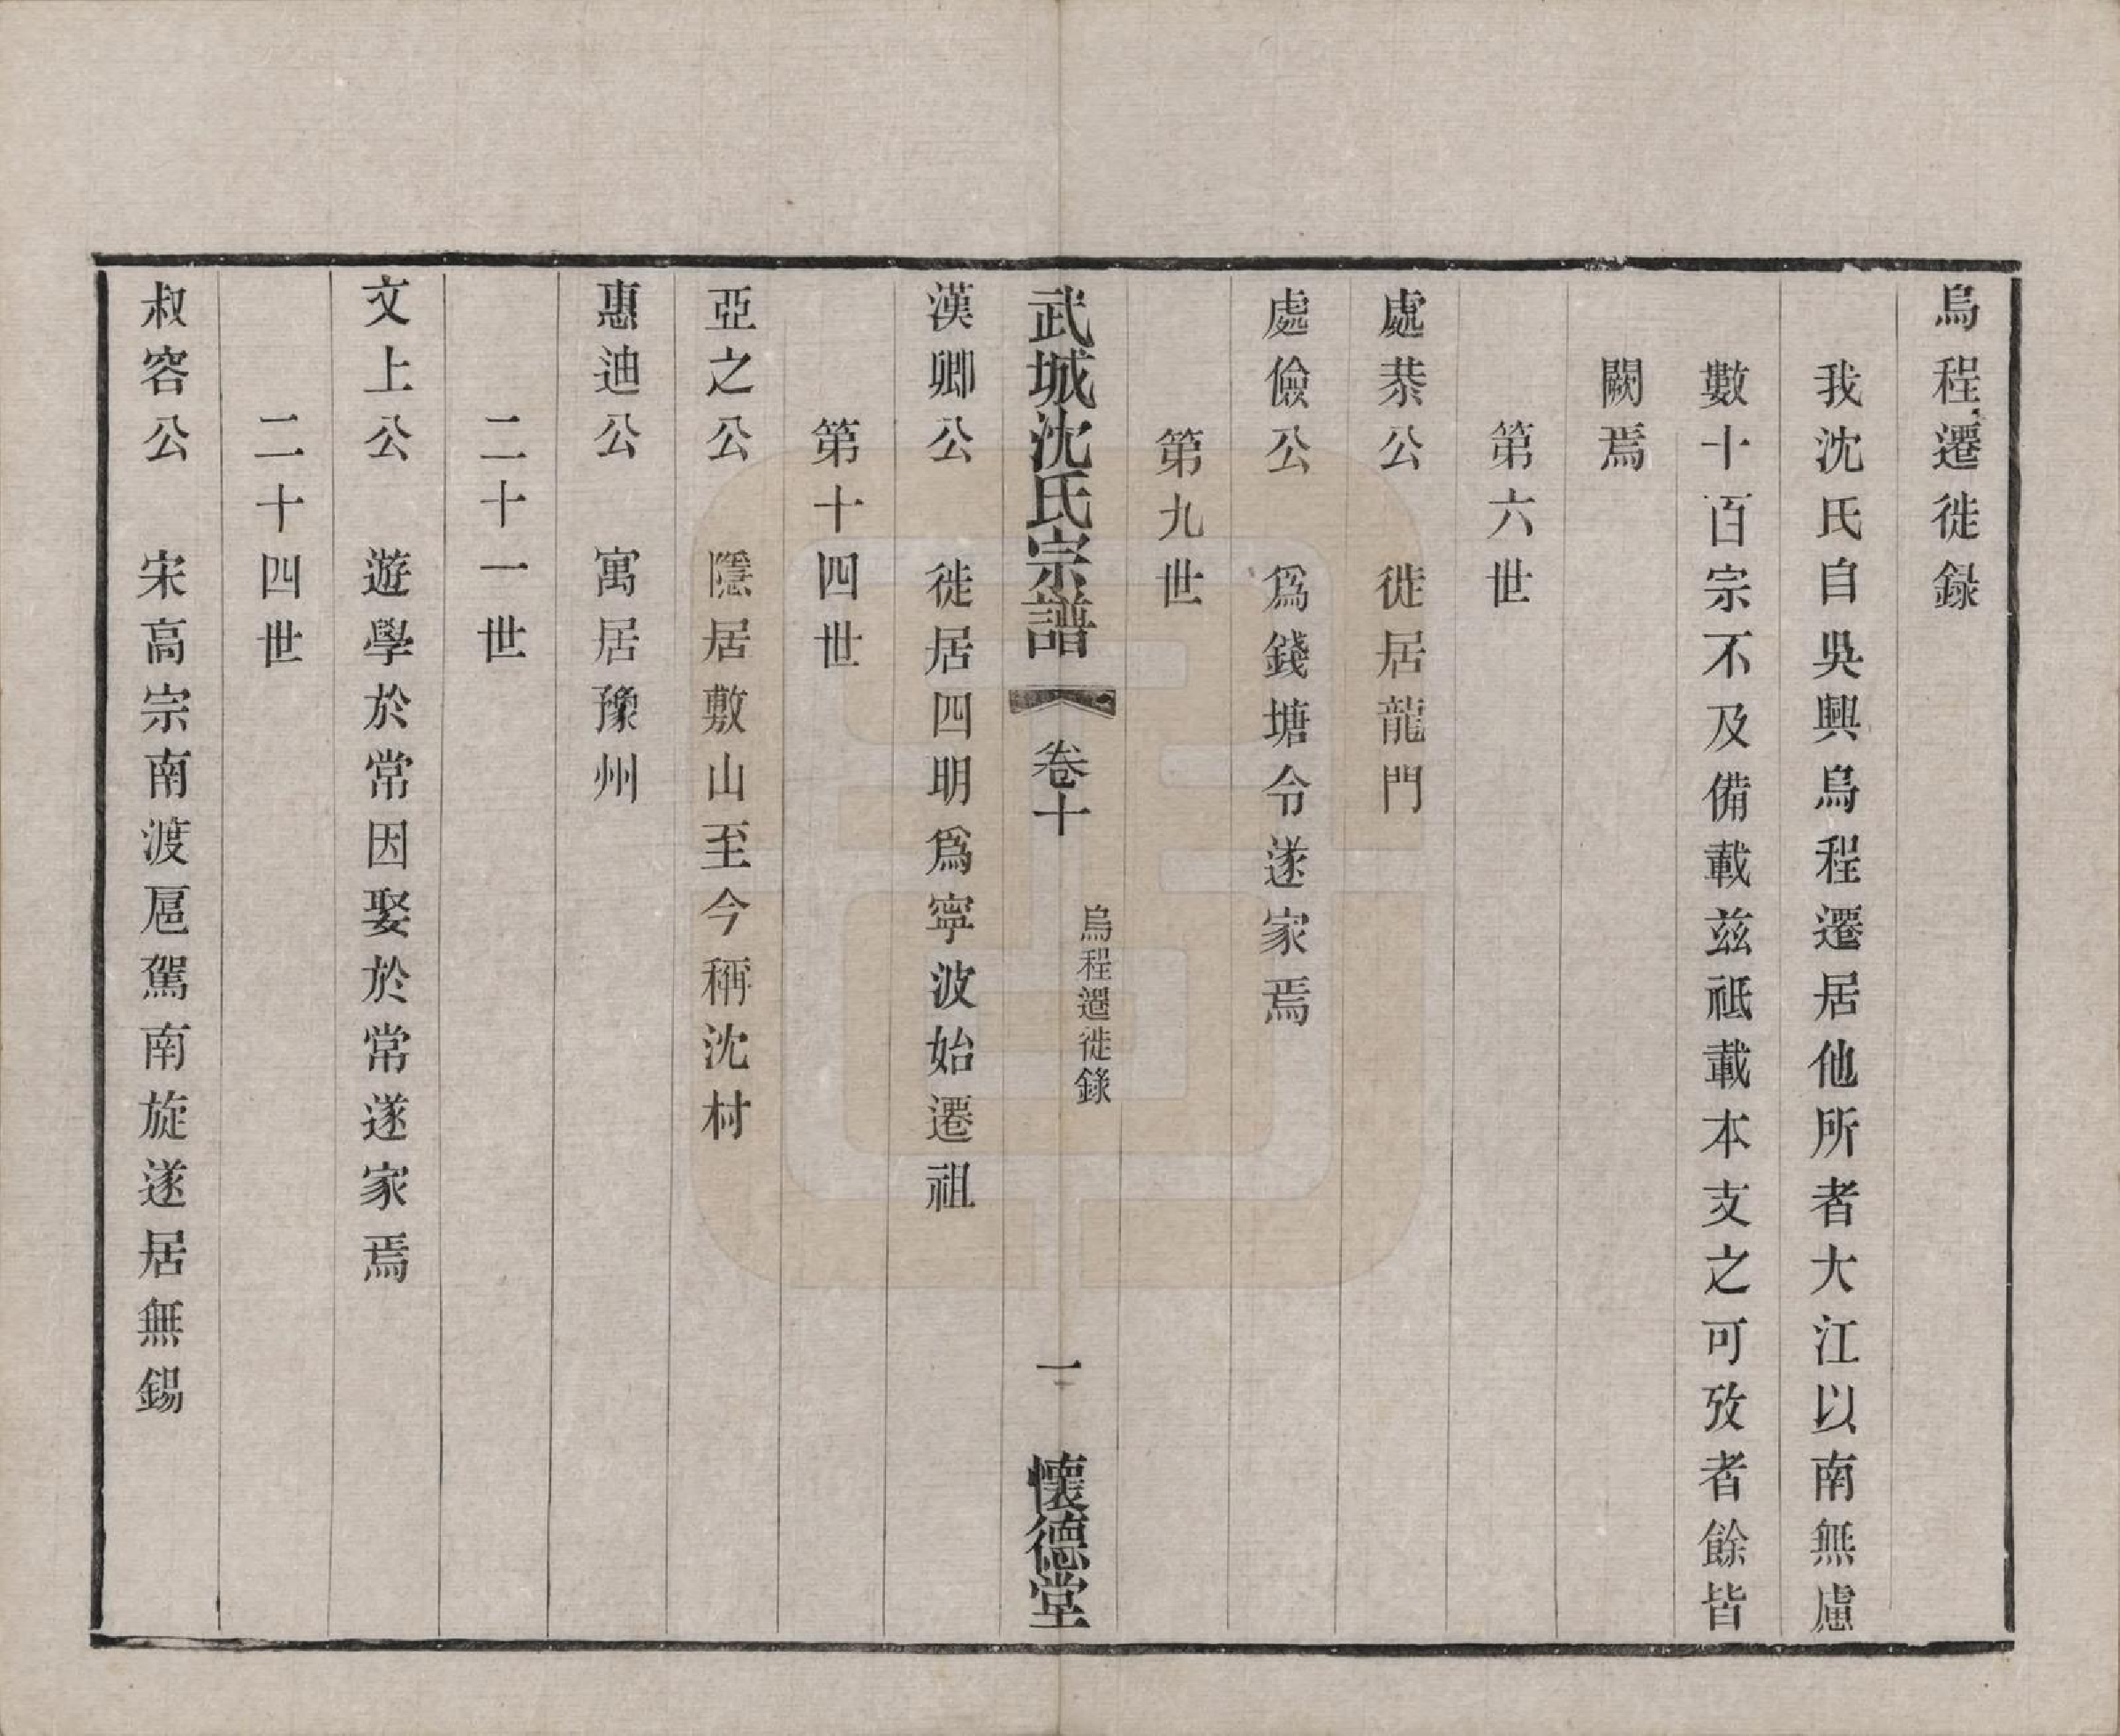 烏程遷徙録
我沈氏自吳興烏程遷居他所者大江以南無慮
數十百宗不及備載兹祗載本支之可攷者餘皆
闕焉
第六世
處恭公　徙居龍門
處儉公　爲錢塘令遂家焉
第九世
武城沈氏宗譜　卷十　烏程遷徙錄　一　懷德堂
漢卿公　徙居四明爲寧波始遷祖
第十四世
亞之公　隱居敷山至今稱沈村
惠迪公　寓居豫州
二十一世
文上公　遊學於常因娶於常遂家焉
二十四世
叔容公　宋高宗南渡扈駕南旋遂居無錫